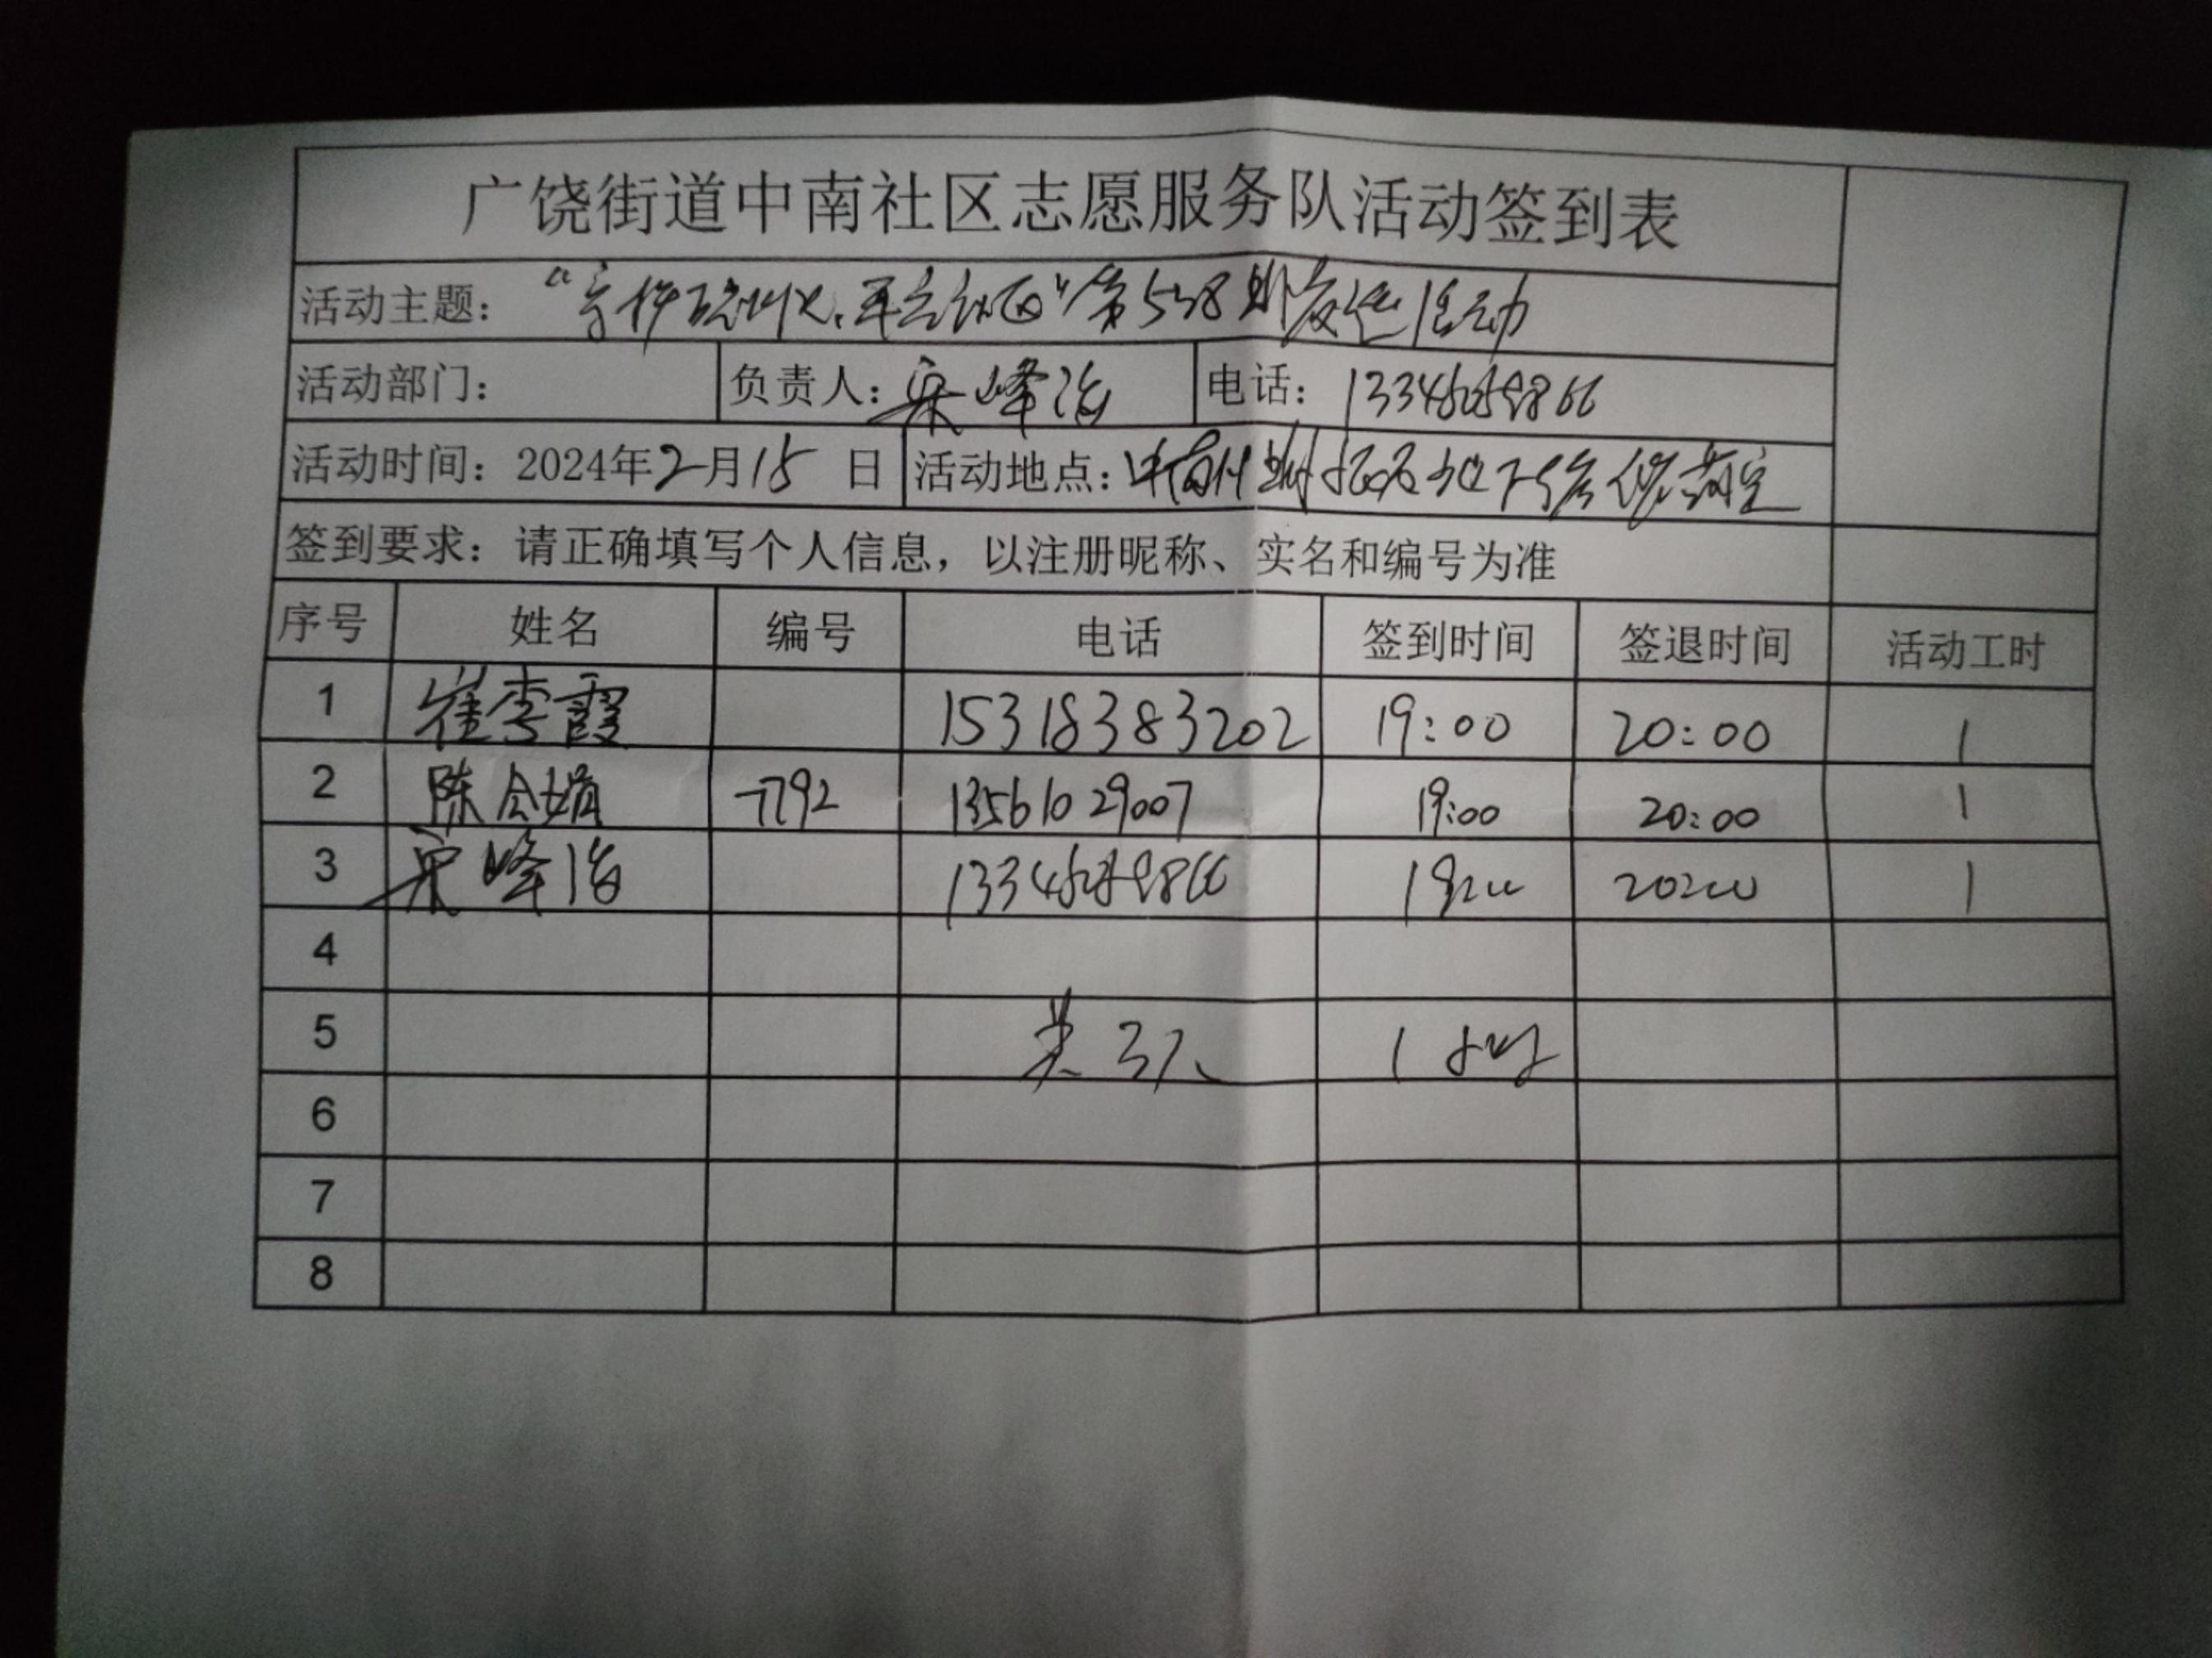 广饶街道中南社区志愿服务队活动签到表
活动主题： 第538期 活动
活动部门： 负责人：宋峰 电话：1334
活动时间：2024年2月15日 活动地点：中南
签到要求：请正确填写个人信息，以注册昵称、实名和编号为准
序号 姓名 编号 电话 签到时间 签退时间 活动工时
1 崔李霞 15318383202 19:00 20:00 1
2 陈会娟 7792 13561029007 19:00 20:00 1
3 宋峰 1334 19:00 20:00 1
4
5 共3人 1小时
6
7
8